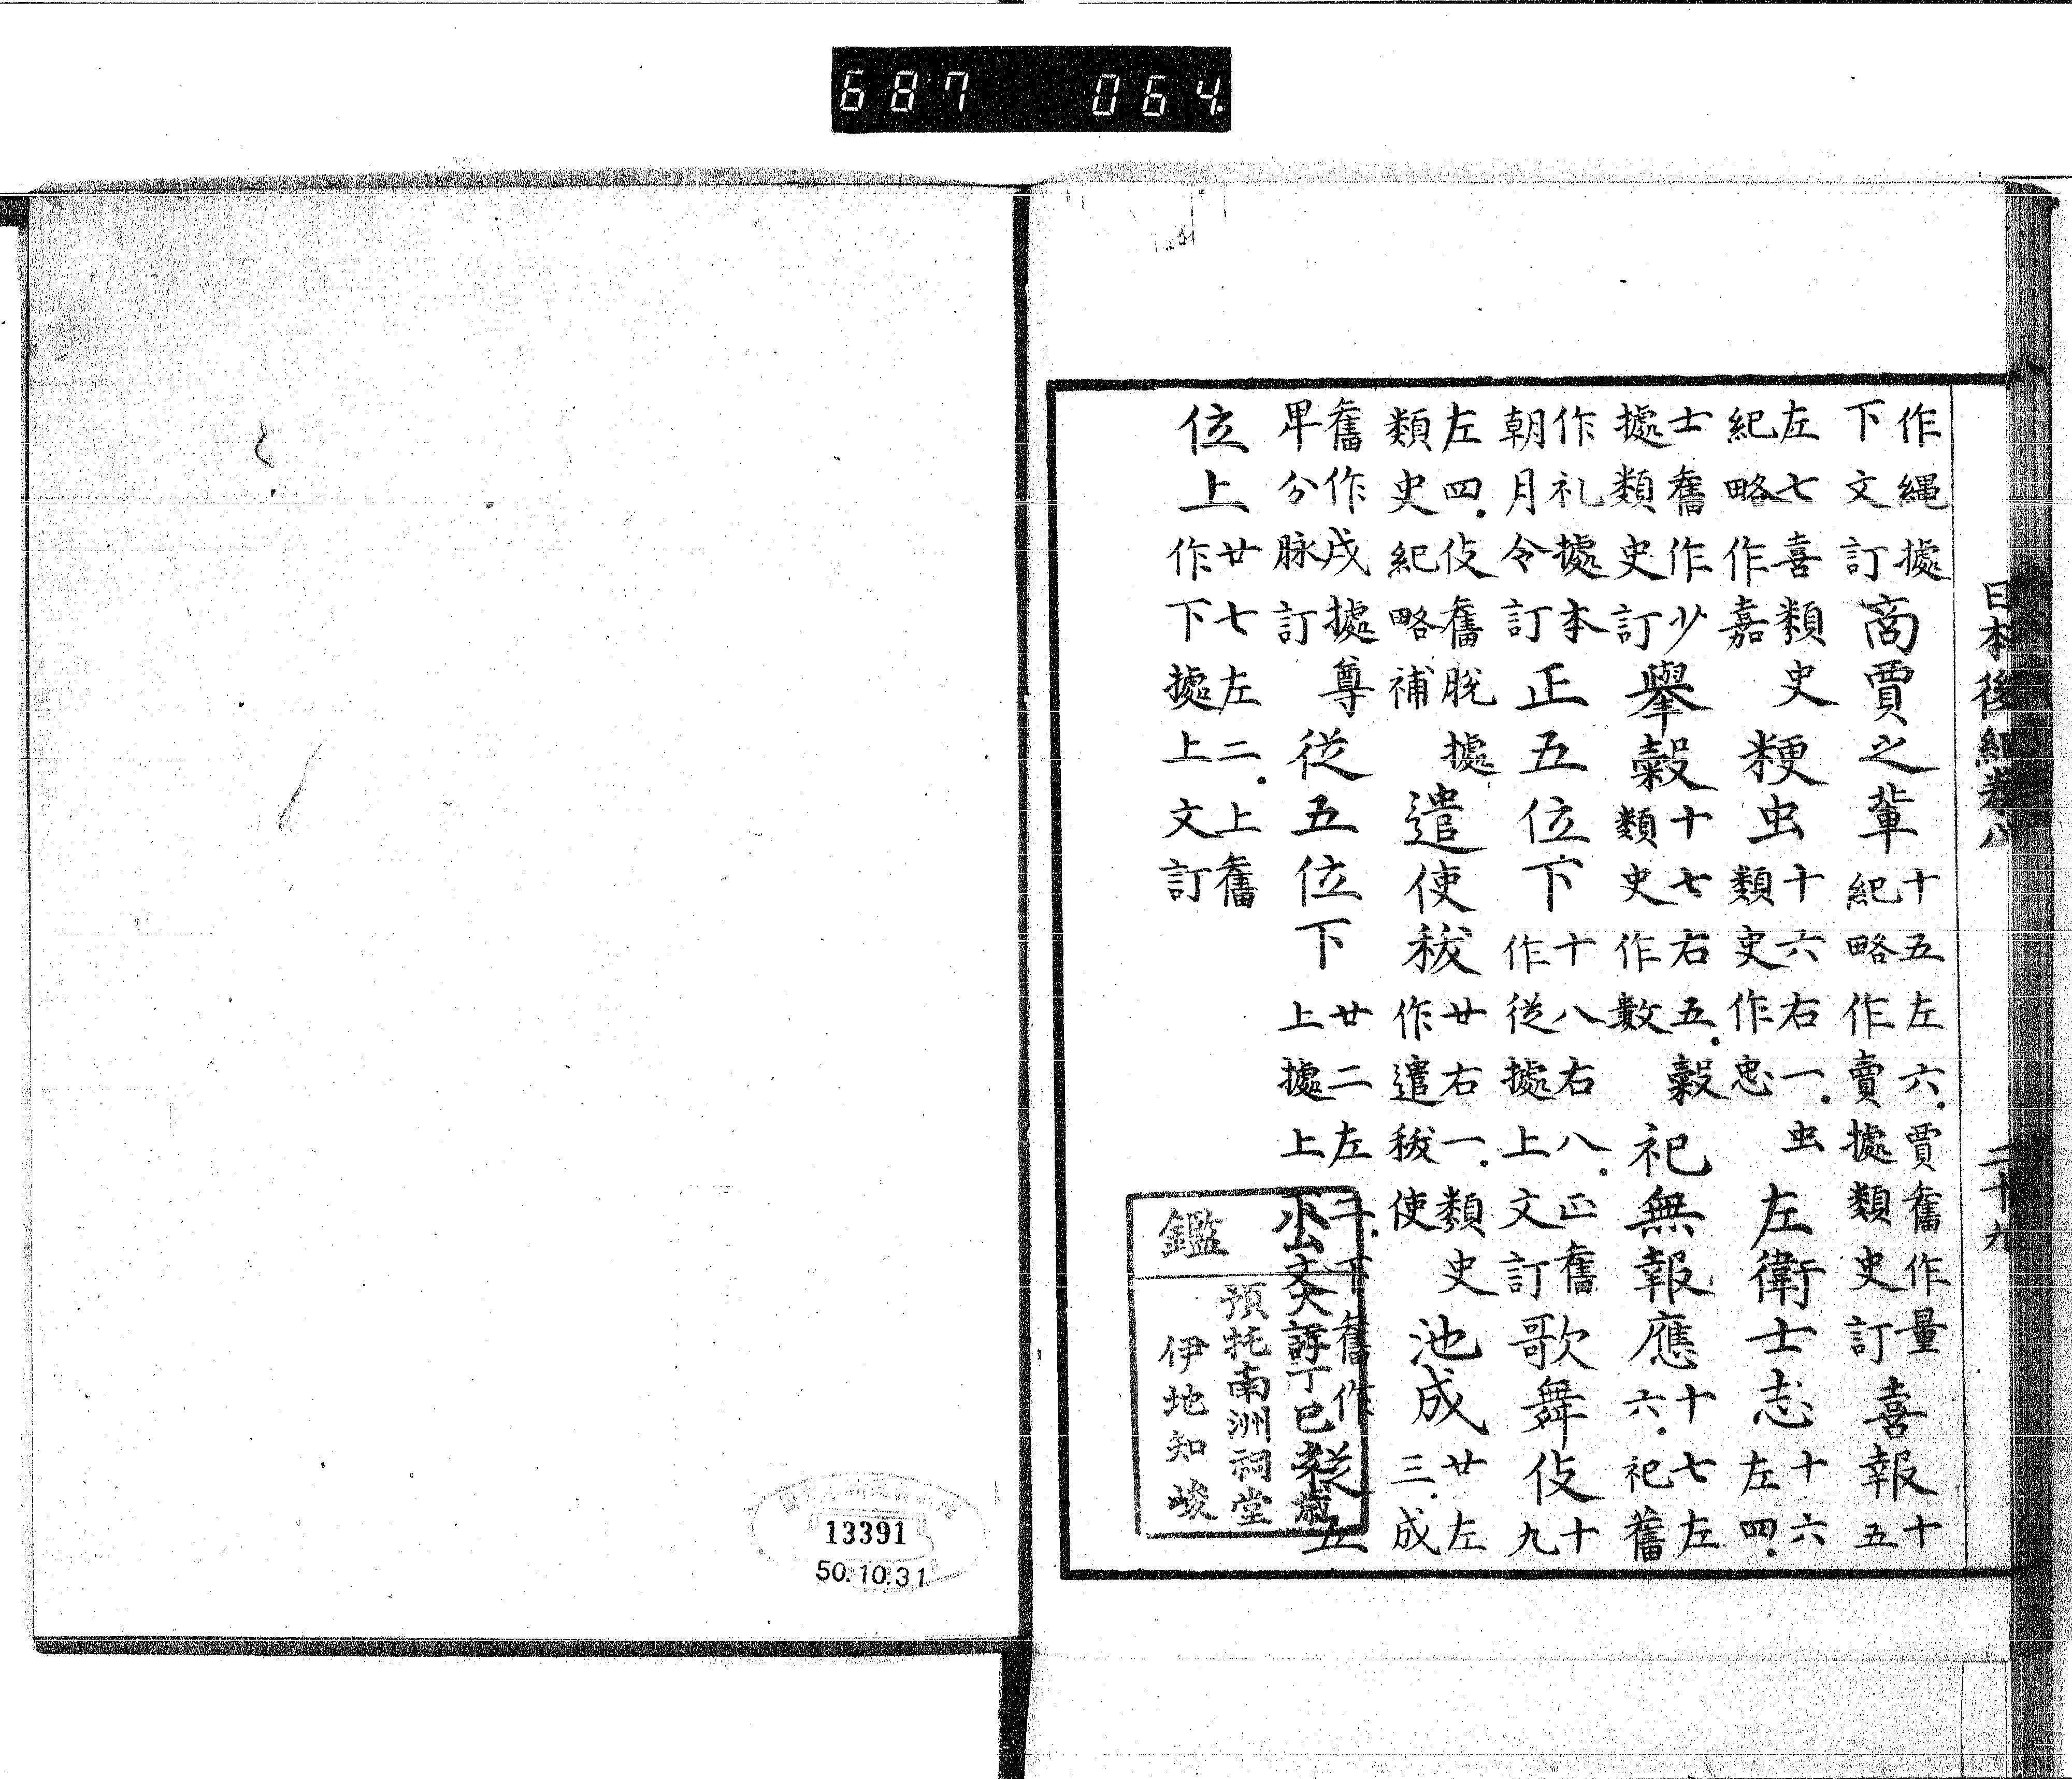 687 064
日本後紀卷八 二十九
作繩據下文訂商賈之輩十五左六.賈舊作量紀略作賣據類史訂喜報十五
左七喜類史紀略作嘉粳虫十六右一.虫類史作忠左衛士志十六左四.
士舊作少據類史訂擧糓十七右五.糓類史作數祀無報應十七左六.祀舊
作礼據本朝月令訂正五位下十八右八.正舊作從據上文訂歌舞伎十九
左四.伎舊脫據類史紀略補遣使秡廿右一.類史作遣秡使池成廿左三.成
舊作戌據尊卑分脉訂從五位下廿二左二.下舊作上據上文訂從五
位上廿七左二.上舊作下據上文訂
鑑
丁巳
預托南洲祠堂
伊地知峻
13391
50.10.31